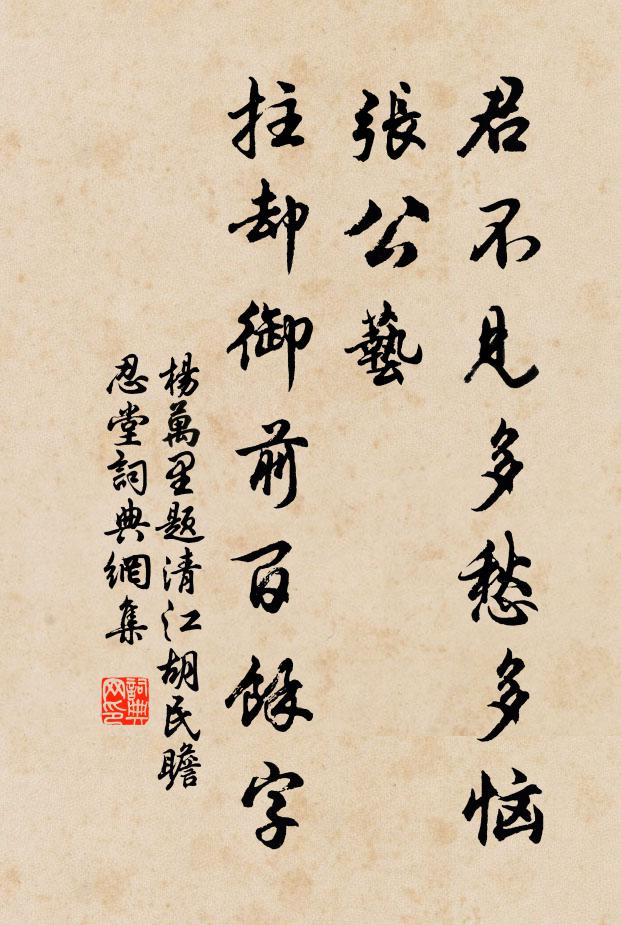 君不見多愁多恼
張公藝
拄却御前百餘字
楊萬里题清江胡民瞻
忍堂詞典網集
詞典
网印